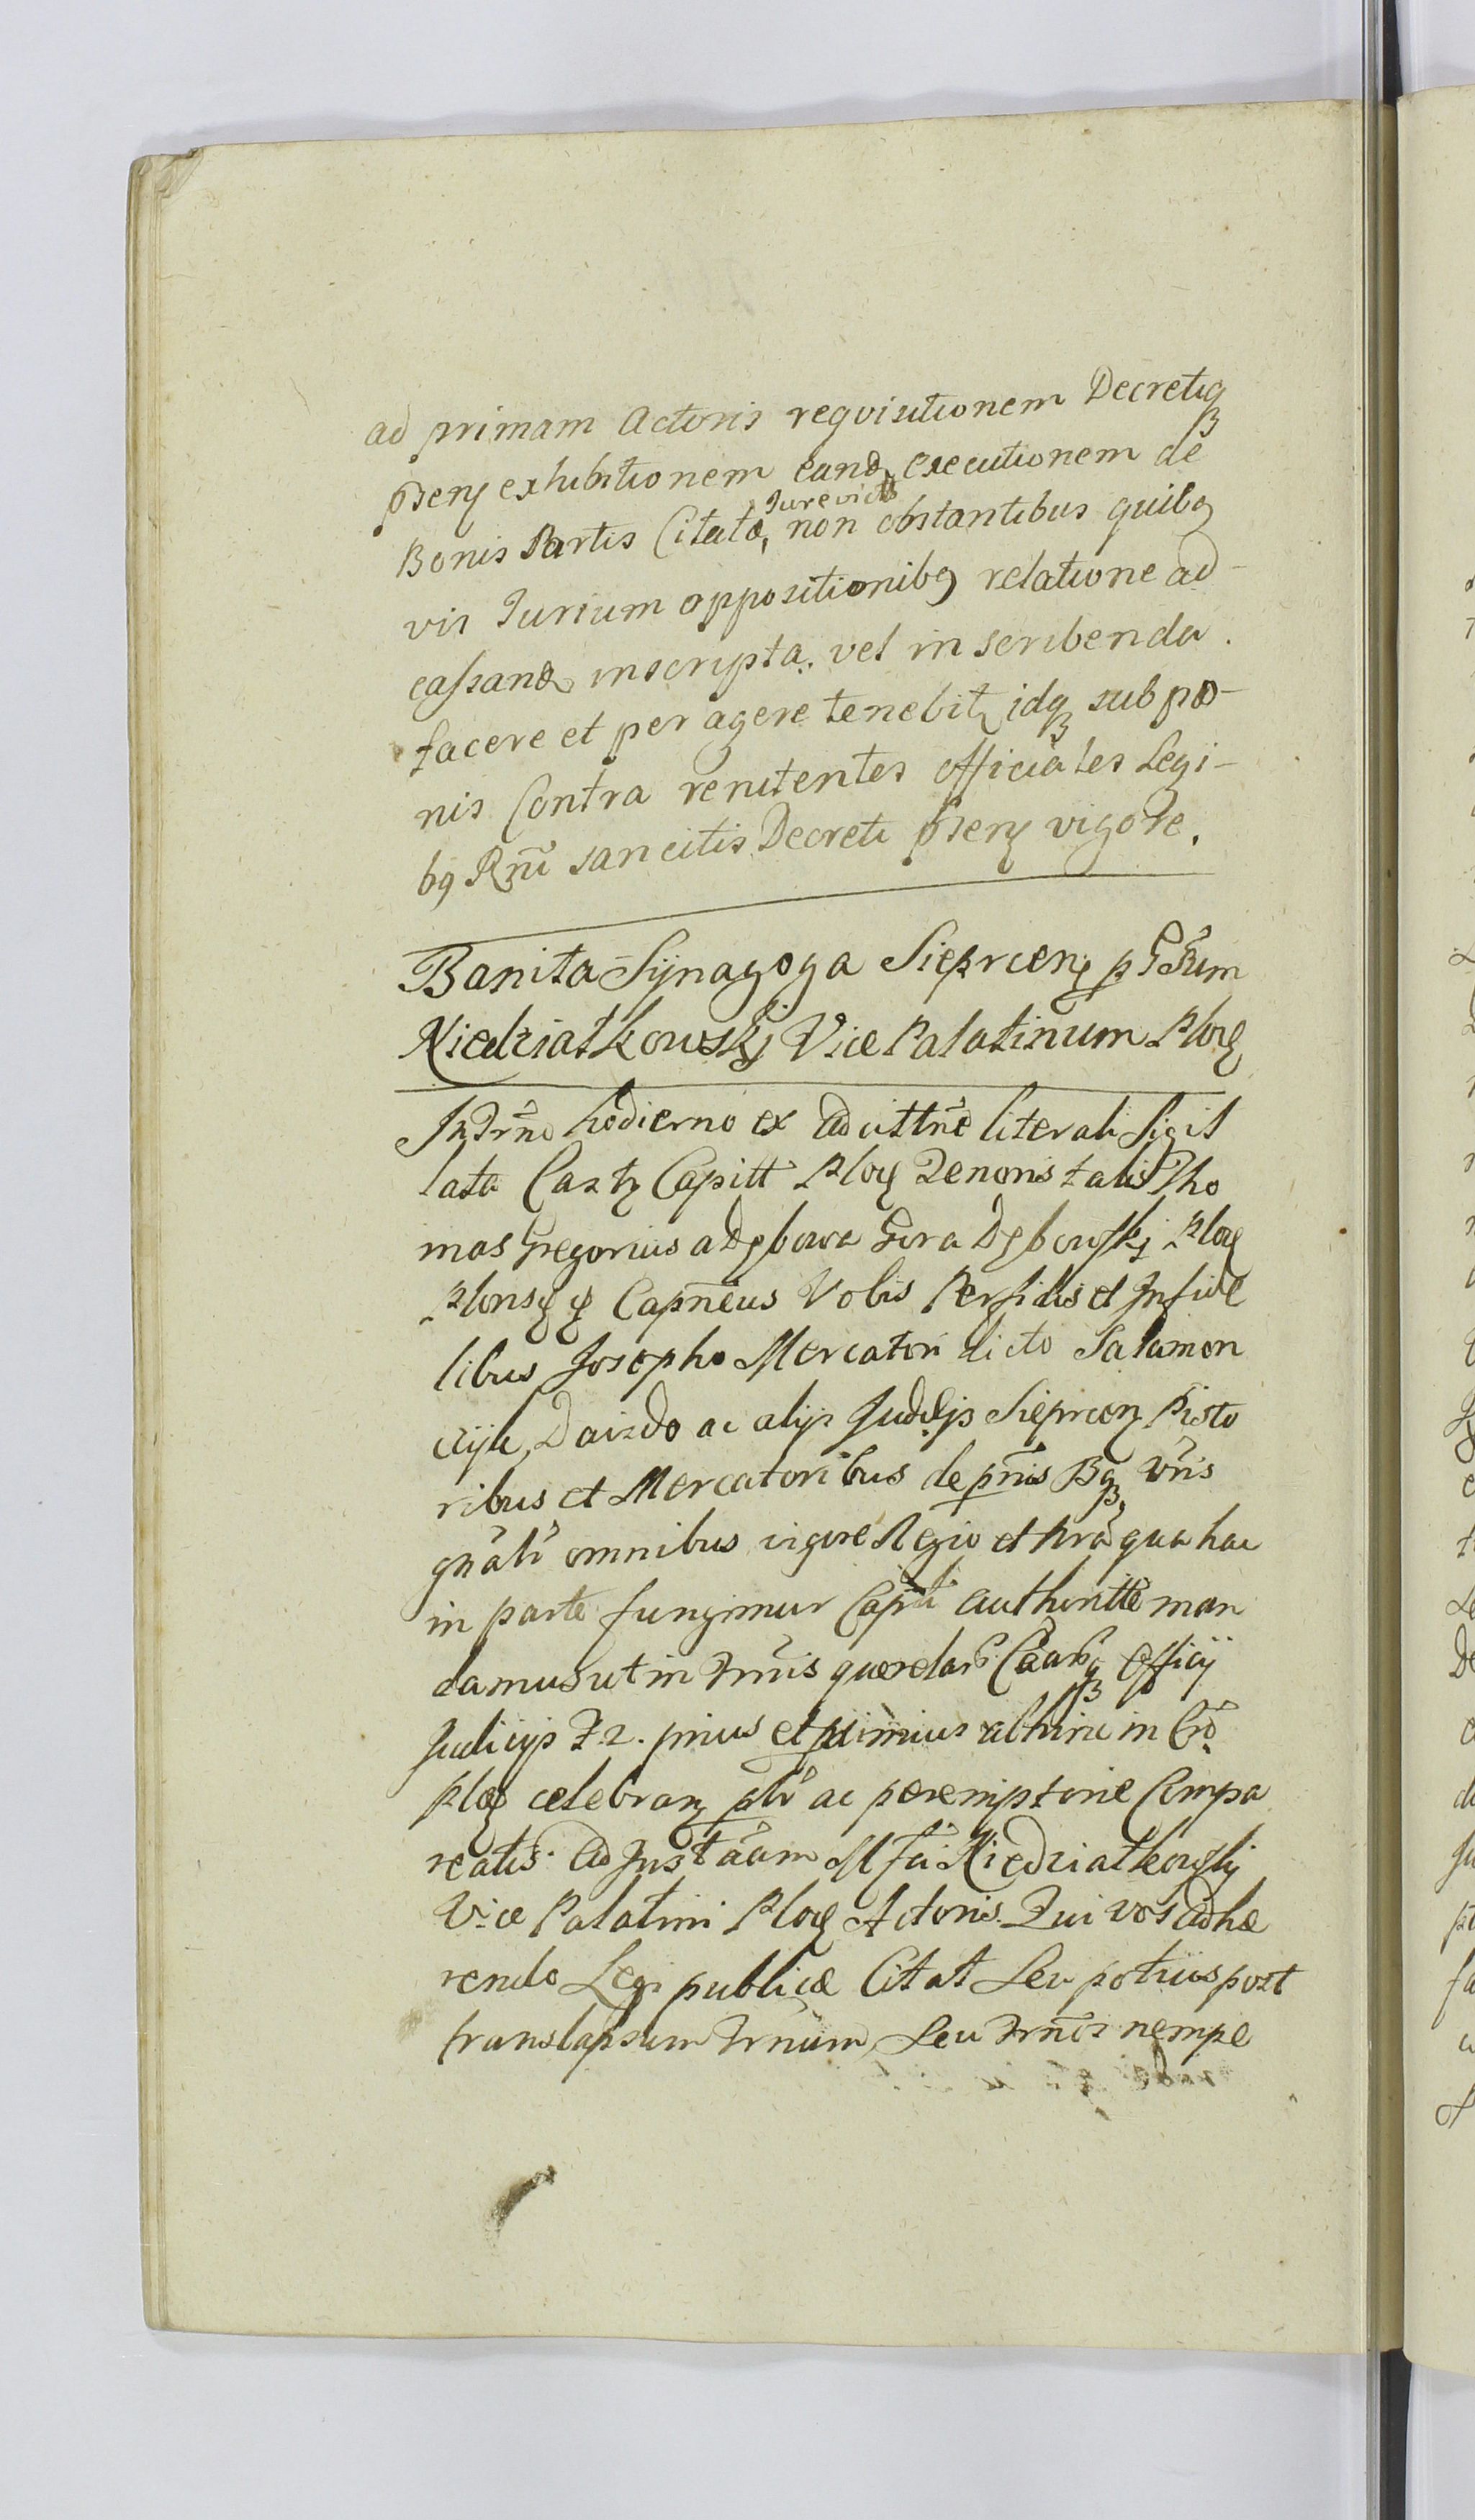 ad primam Actoris reqvisitionem Decretiq
pseng exhibitionem eand. Executionem de
Jurevictæ
Bonis Partis Citatæ, non obstantibus quibq
vis Jurium oppositionibq relatione ad-
cassand inscripta. vel in scribenda.
facere et per agere tenebit, idq sub pœ-
nis Contra renitentes officiales Legi-
bq Rni sancitis Decreti pseng vigore.
Banita Synagoga Sieprcen p
Niedziatkowskj Vice Palatinum Ploc
In Trno hodierno ex ad cittne literali Sigil
lata Castr Capitt Ploc Tenoris talis Tho
mas Gregorius a Dębowa Gora Dębowskj Ploc
Plonsq Capneus Vobis Perfidis et Infide
libus Josepho Mercatori dicto Salamon
Dawido ac alijs Judæjs Sieprcen Pisto
ribus et Mercatoribus de pnis Bq vris
gnali omnibus vigore Regio et nra qua hac
in parte fungimur Capli authoritte man
damus ut in Trnis querelar Officij
Judicijs Fz. prius et primius abhinc in Cro
Ploc celebran pli ac peremptorie Compa
reatis. Ad Instaam Mfci Niedziatkowskj
Vice Palatini Ploc Actoris. Qui vos adhæ
rendo Legi publicæ Citat Seu potius post
translapsum Trnum, Seu Trnos nempe